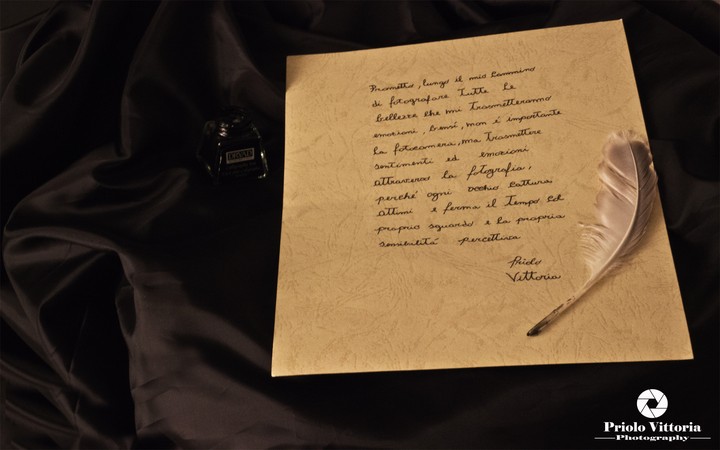 Prometto, lungo il mio cammino
di fotografare tutte le
bellezze che mi trasmetteranno
emozioni, bensì, non è importante
la fotocamera, ma trasmettere
sentimenti ed emozioni
attraverso la fotografia,
perché ogni occhio cattura
attimi e ferma il tempo col
proprio sguardo e la propria
sensibilità percettiva
Priolo
Vittoria
Priolo Vittoria
Photography